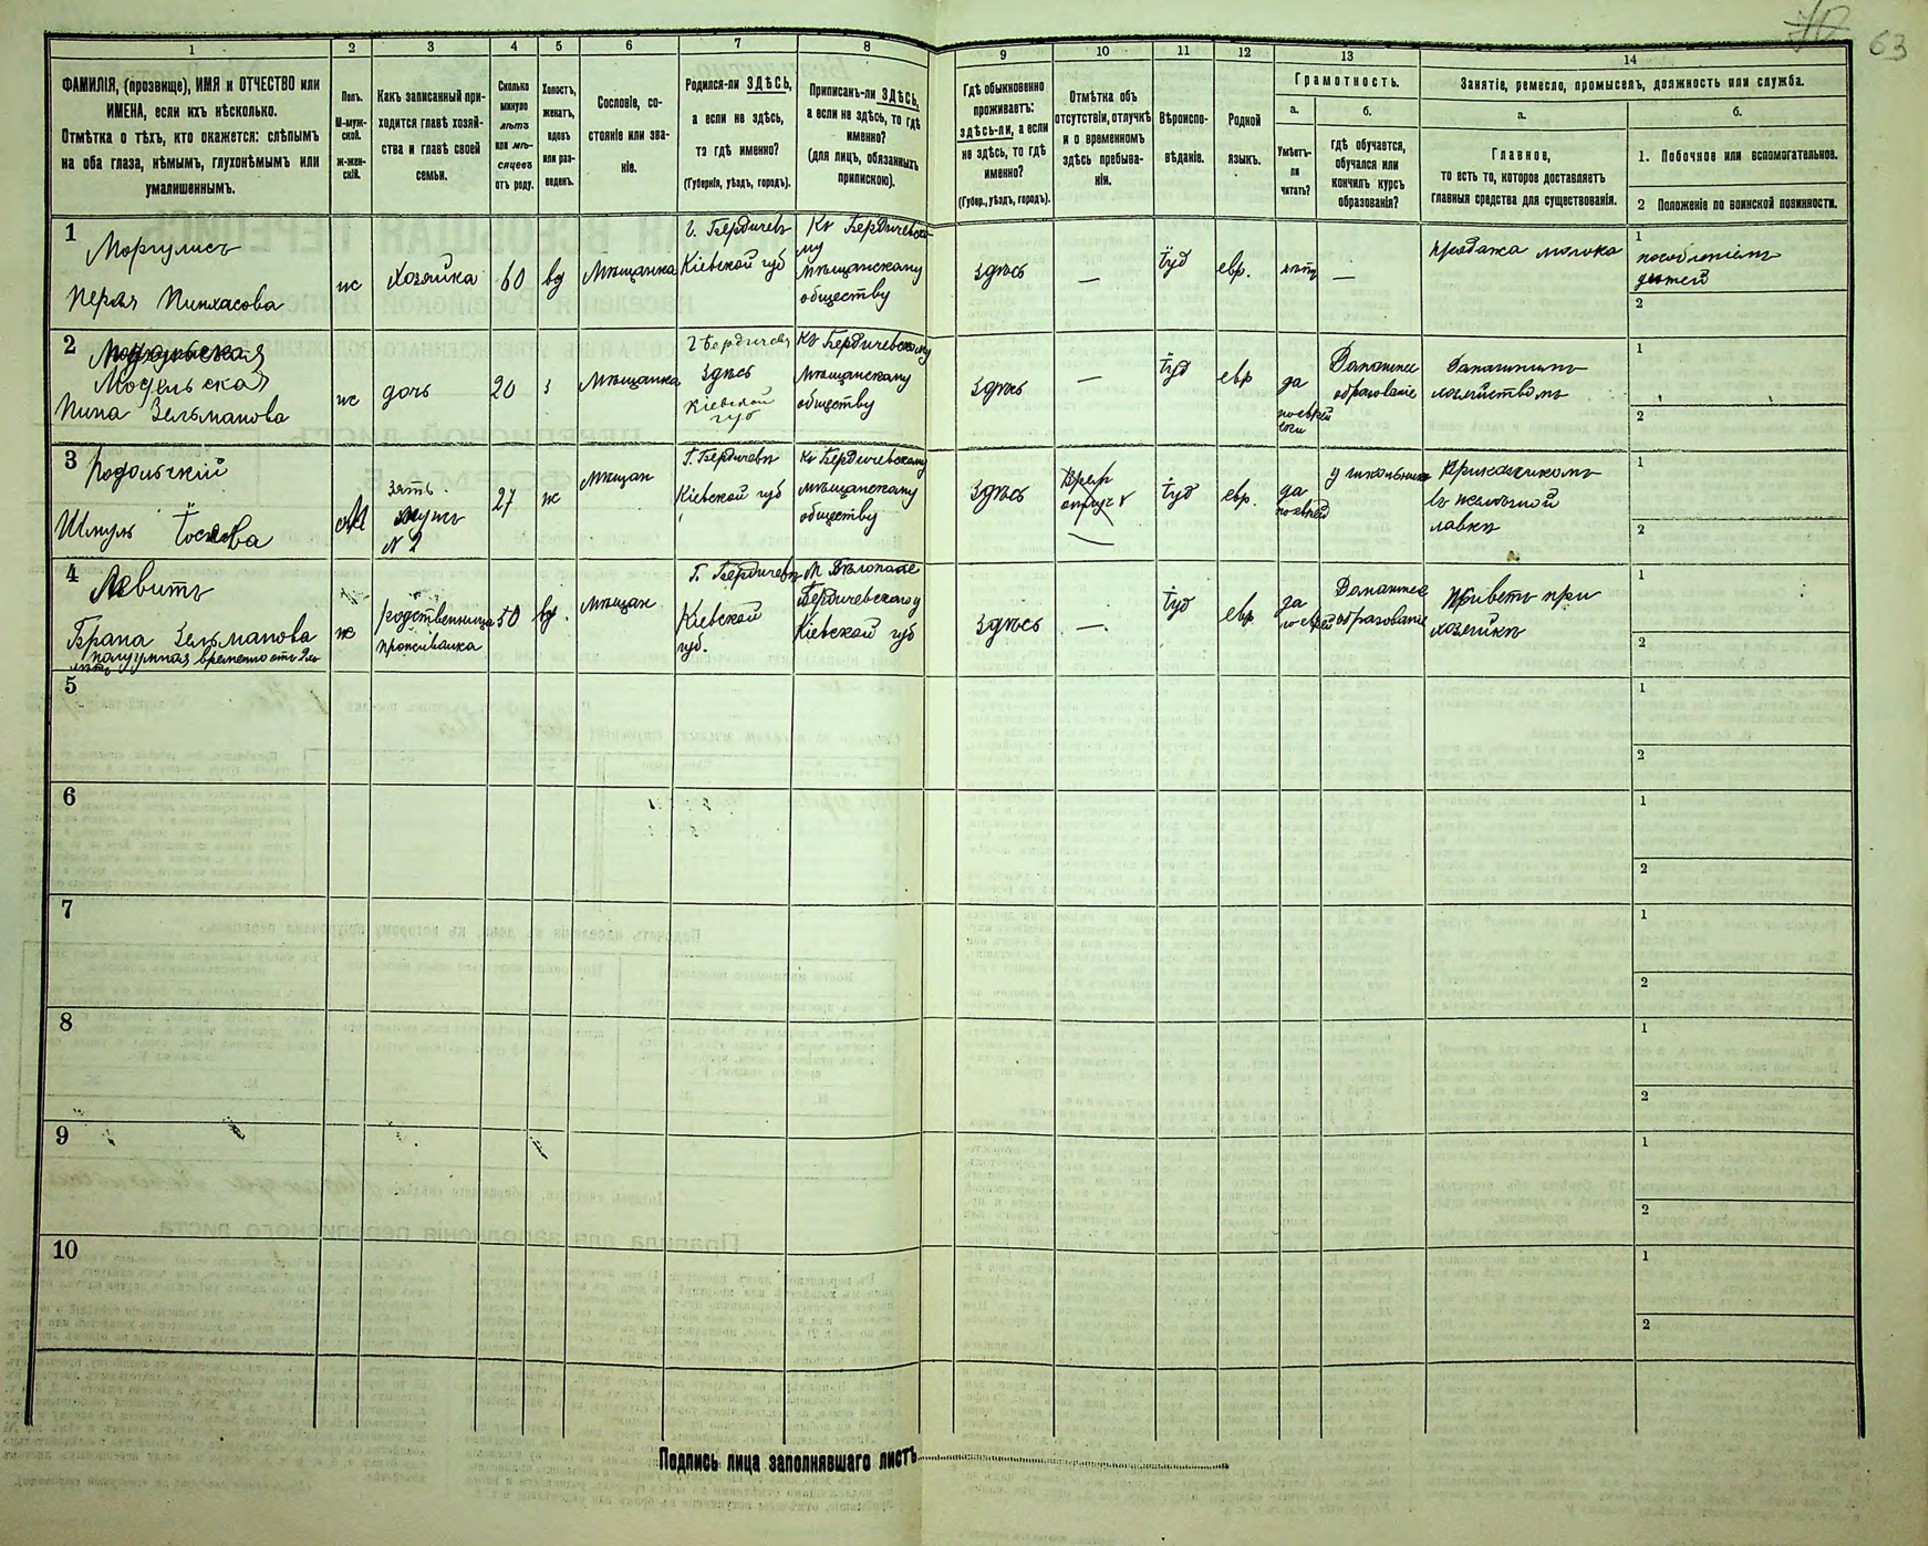 63
1 2 3 4 5 6 7 8 9 10 11 12 13 14
ФАМИЛІЯ, (прозвище), ИМЯ и ОТЧЕСТВО или
ИМЕНА, если ихъ нѣсколько.
Отмѣтка о тѣхъ, кто окажется: слѣпымъ
на оба глаза, нѣмымъ, глухонѣмымъ или
умалишеннымъ.
Полъ.
М-муж-
ской.
ж-жен-
скій.
Какъ записанный при-
ходится главѣ хозяй-
ства и главѣ своей
семьи.
Сколько
минуло
лѣтъ
или мѣ-
сяцевъ
отъ роду.
Холостъ,
женатъ,
вдовъ
или раз-
веденъ.
Сословіе, со-
стояніе или зва-
ніе.
Родился-ли ЗДѢСЬ,
а если не здѣсь,
то гдѣ именно?
(Губернія, уѣздъ, городъ).
Приписанъ-ли ЗДѢСЬ,
а если не здѣсь, то гдѣ
именно?
(для лицъ, обязанныхъ
припискою).
Гдѣ обыкновенно
проживаетъ:
здѣсь-ли, а если
не здѣсь, то гдѣ
именно?
(Губер., уѣздъ, городъ).
Отмѣтка объ
отсутствіи, отлучкѣ
и о временномъ
здѣсь пребыва-
ніи.
Вѣроиспо-
вѣданіе.
Родной
языкъ.
Грамотность.
а.
Умѣетъ-
ли
читать?
б.
гдѣ обучается,
обучался или
кончилъ курсъ
образованія?
Занятіе, ремесло, промыселъ, должность или служба.
а.
Главное,
то есть то, которое доставляетъ
главныя средства для существованія.
б.
1. Побочное или вспомогательное.
2 Положеніе по воинской повинности.
1
Моргулисъ
Перля Пинхасова
ж
Хозяйка
60
вд
Мѣщанка
г. Бердичевъ
Кіевской губ
Къ Бердичевско-
му
мѣщанскому
обществу
Здѣсь
—
Іуд
евр.
нѣтъ
—
продажа молока
1
пособленіемъ
детей
2
2
Подольская
Пина Зельманова
ж
дочь
20
з
Мѣщанка
г Бердичевъ
Здѣсь
Кіевской
губ
Къ Бердичевскому
мѣщанскому
обществу
Здѣсь
—
Іуд
евр
да
по еврей
ски
Домашнее
образованіе
Домашнимъ
хозяйствомъ
1
2
3
Подольскій
Шмуль Іоскова
М
зять.
мужъ
N 2
27
ж
мѣщан
Г. Бердичевъ
Кіевской губ
Къ Бердичевскому
мѣщанскому
обществу
Здѣсь
Врем
отлуч
Іуд
евр.
да
по еврей
у школьника
Прикащикомъ
въ желѣзной
лавкѣ
1
2
4
Левитъ
Брана Зельманова
полоумная временно отъ 2хъ
лѣтъ
ж
родственница
проживалка
50
вд.
мѣщан
Г. Бердичевъ
Кіевской
губ.
М Бѣлополе
Бердичевскаго у
Кіевской губ
Здѣсь
—.
Іуд
евр
да
по еврей
Домашнее
образованіе
Живетъ при
хозяйкѣ
1
2
5
1
2
6
1
2
7
1
2
8
1
2
9
1
2
10
1
2
Подпись лица заполнявшаго листъ